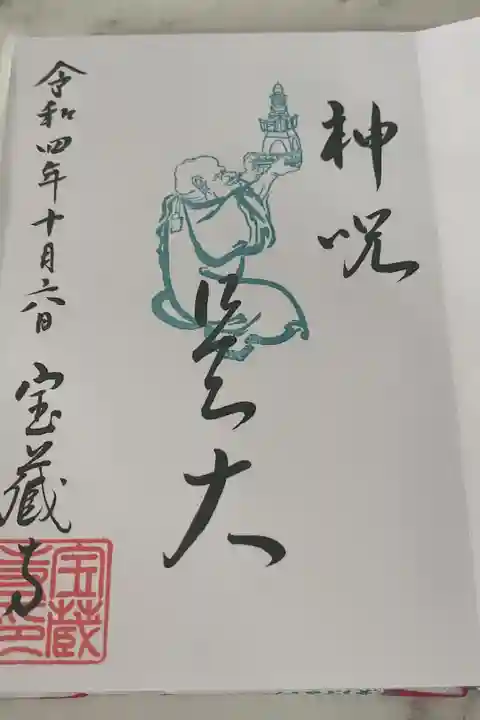 神呪
是大
令和四年十月六日 宝蔵寺
宝蔵寺印